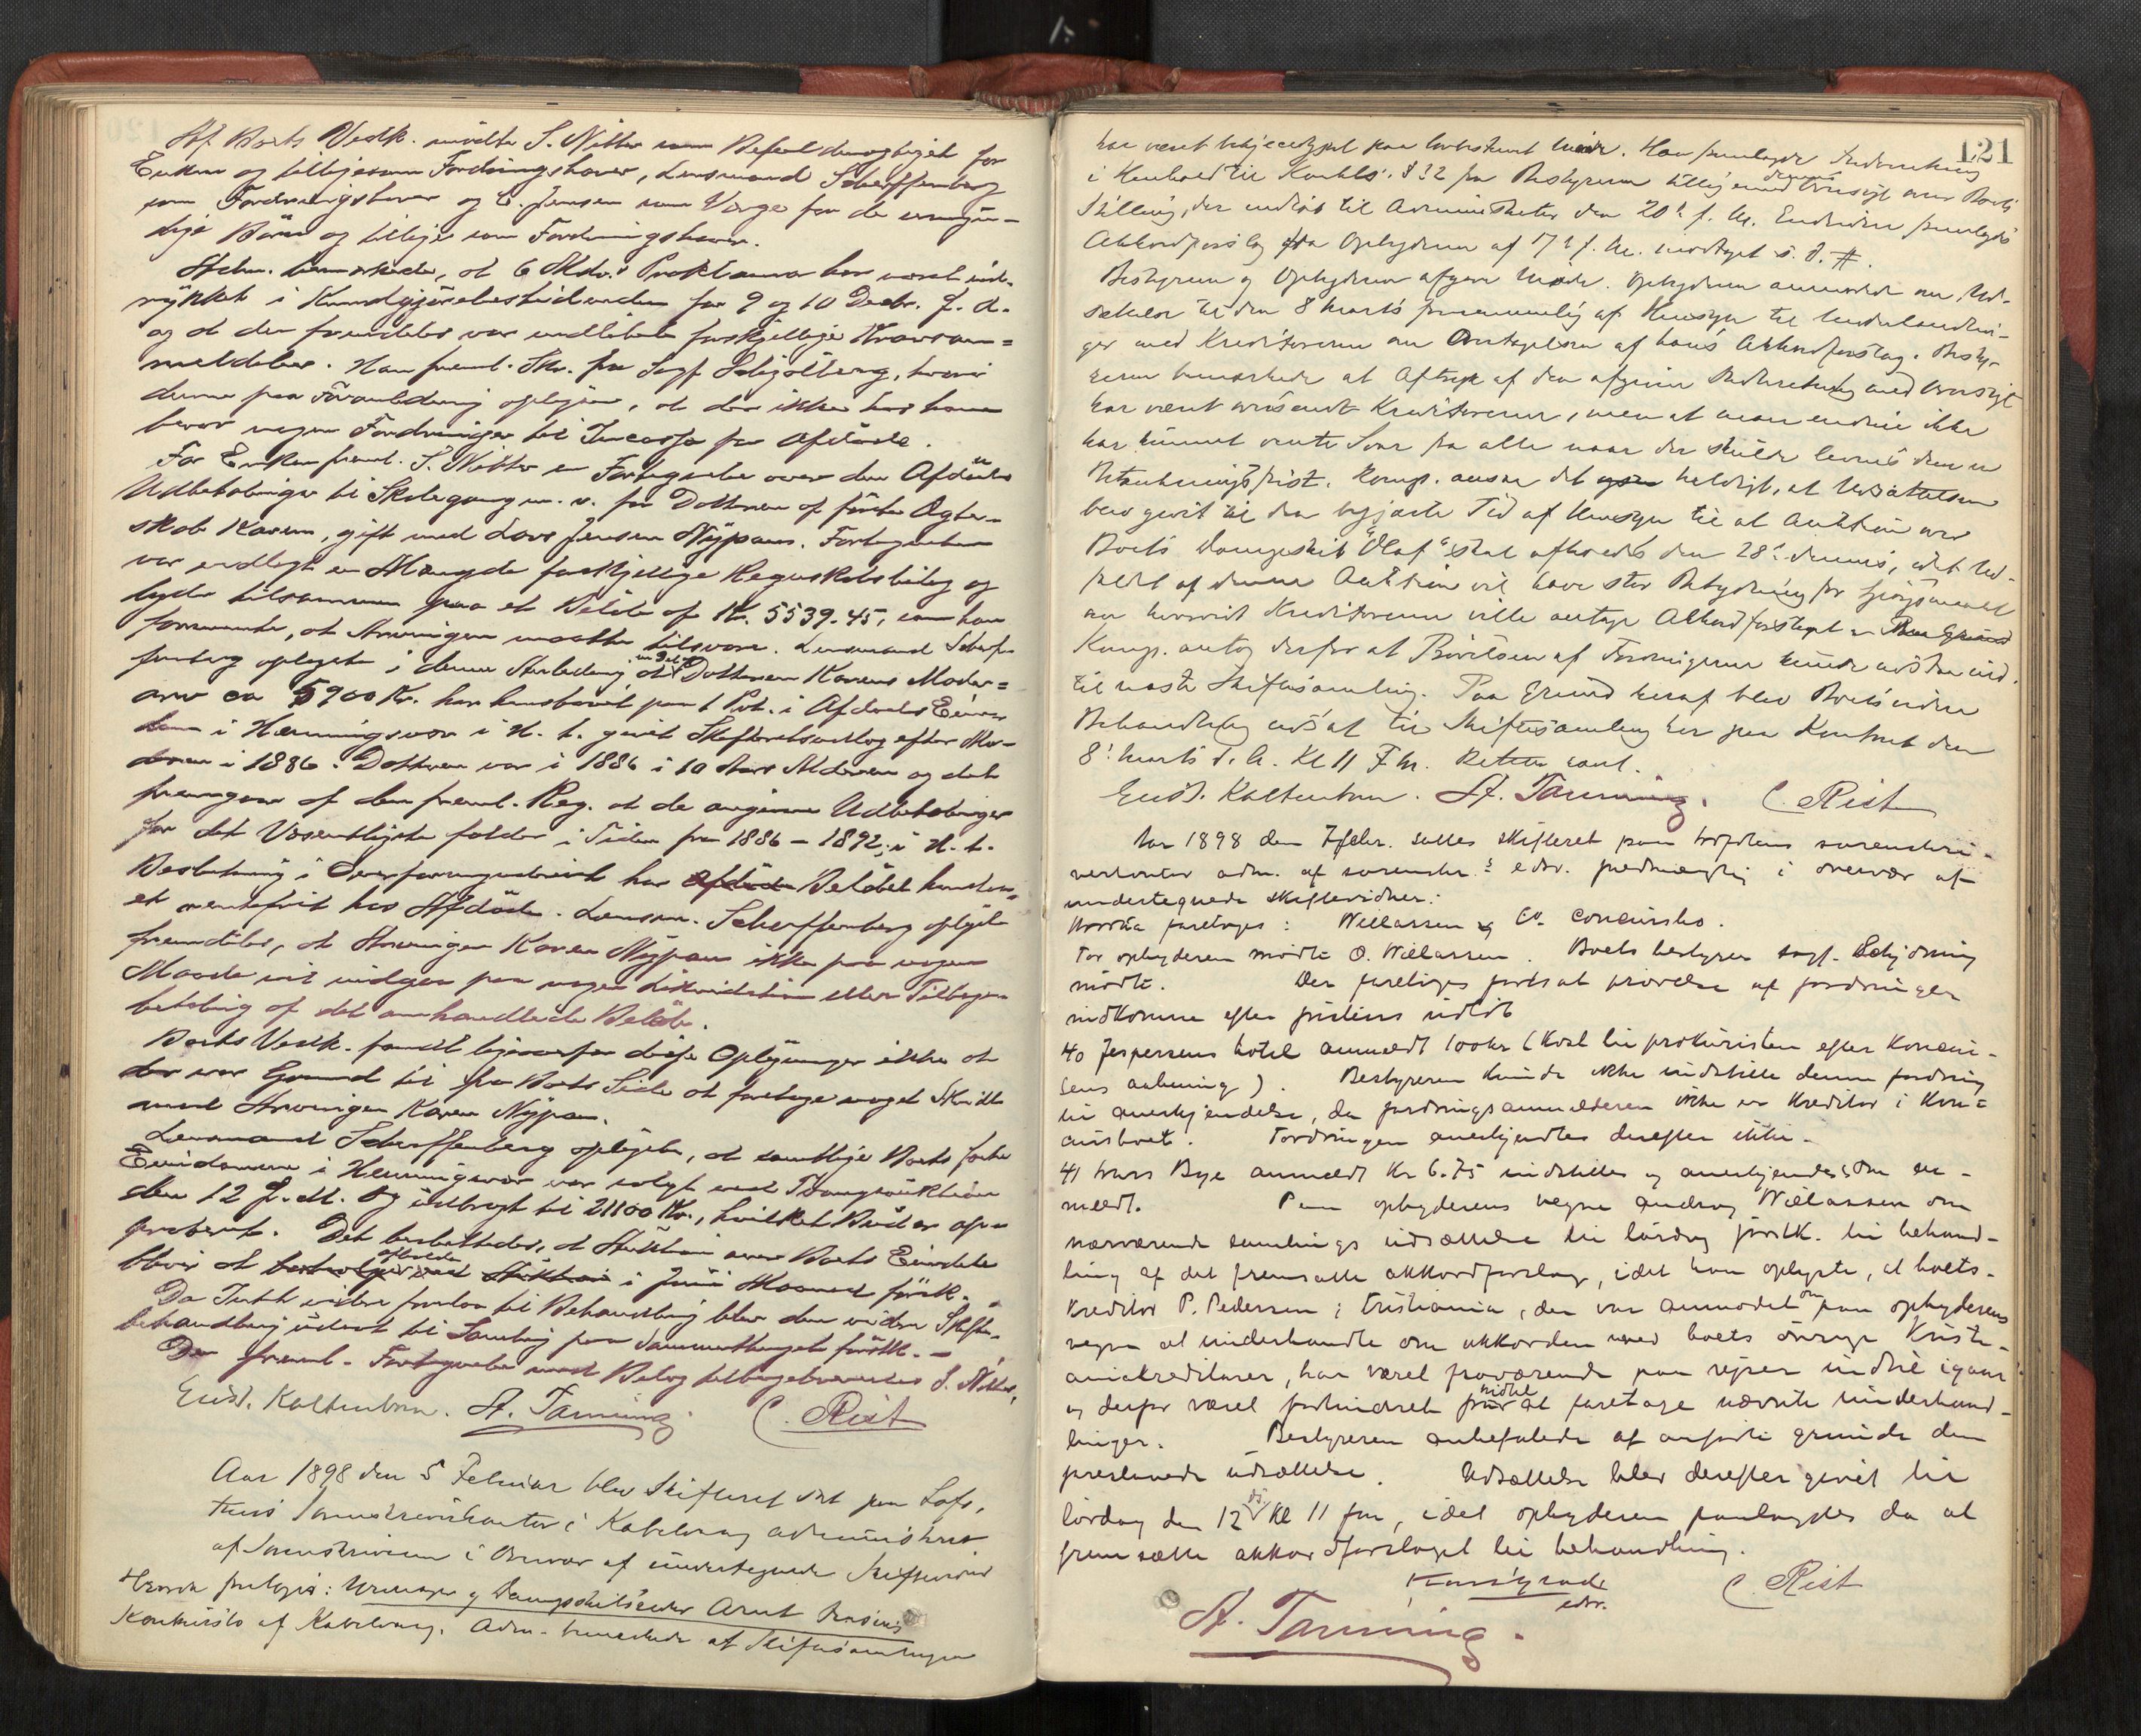 Af Boets Vedk. mödte S. Nitter som Befuldmægtiget for
Enken og tillige som Fordringshaver, Lensmand Scheffenberg
som Fordringshaver og C. Jensen som Værge for de umyn-
dige Börn og tillige som Fordringshaver.
Adm. bemærkede, at 6 Mdrs Proklama har været ind-
rykket i Kundgjörelsestidende for 9 og 10 Decbr. f. A.
og at der fremdeles var indlöbet forskjellige Kravsan-
meldelser. Han freml. Skr. fra Sagf. Schjölberg, hvori
denne paa Foranledning oplyser, at der ikke hos ham
beror nogen Fordringer til Incasso for Afdöde.
For Enken freml. S. Nitter en Fortegnelse over den Afdödes
Udbetalinger til Skolegang m. v. for Datteren af förste Ægte-
skab Karen, gift med Lars Jensen Nypan. Fortegnelsen
var vedlagt en Mængde forskjellige Regnskabsbilag og
lyder tilsammen paa et Belöb af Kr. 5539.45, som han
formente, at Arvingen maatte tilsvare. Lensmand Scheffen-
berg oplyste i denne Anledning at en Del af Datteren Karens Mödre-
arv ca 5900 Kr. har henstaaet paa 1 Pr. i Afdödes Eien-
dom i Henningsvær i H. t. givet Skifteretsudlæg efter Mo-
deren i 1886. Datteren var i 1886 i 10 Aars Alderen og det
fremgaar af den freml. Reg. at de angivne Udbetalinger
for det Væsentligste falder i Tiden fra 1886 - 1892; i H. t.
Beslutning i Overformynderiet har Belöbet henstaa-
et rentefrit hos Afdöde. Lensm. Scheffenberg oplyste
fremdeles, at Arvingen Karen Nypan ikke paa nogen
Maade vil indgaa paa nogen Likvidation eller Tilbage-
betaling af det omhandlede Belöb.
Boets Vedk. fandt ligeoverfor disse Oplysninger ikke at
der var Grund til fra Boets Side at foretage noget Skridt
mod Arvingen Karen Nypan.
Lensmand Scheffenberg oplyste, at samtlige Boets faste
Eiendomme i Henningsvær var solgt ved Tvangsauktion
den 12 f. M. og udbragt til 21100 Kr., hvilket Bud er ap-
proberet. Det besluttedes, at Auktion over Boets Eiendele
bliver at afholde i Juni Maaned förstk.
Da Intet videre forelaa til Behandling blev den videre Skifte-
behandling udsat til Samling paa Sommerthinget förstk. -
Den freml. Fortegnelse med Bilag tilbageleveredes S. Nitter.
Eivd. Kaltenborn. A. Tanning. C. Rist
Aar 1898 den 5 Februar blev Skifteret sat paa Lofo-
tens Sorenskriverkontor i Kabelvaag administreret
af Sorenskriveren i Overvær af undertegnede Skiftevidner
Hvorda foretoges: Uhrmager og Dampskibsreder Arnt
Konkursbo af Kabelvaag. Adm. bemærkede at Skiftesamlingen
121
har været bekjendtgjort paa lovbestemt Maade. Han fremlagde Indberetning
i Henhold til Konkls. § 32 fra Bestyreren tilligemed dennes Oversigt over Boets
Stilling, der indlöb til Administrator den 20de f. M. Endvidere fremlagdes
Akkordforslag fra Opbyderen af 17de f. M. modtaget s. D. #.
Bestyreren og Opbyderen afgav Möde. Opbyderen anmodede om Ud-
sættelse til den 8 Marts fornemmelig af Hensyn til Underhandlin-
ger med Kreditorerne om Antagelsen af hans Akkordforslag. Besty-
reren bemærkede at Aftryk af den afgivne Indberetning med Oversigt
har været oversendt Kreditorerne, men at man endnu ikke
har kunnet vente Svar fra alle naar der skulde levnes dem en
Betænkningsfrist. Komp. ansaa det heldigt, at Udsættelsen
blev givet til den begjærte Tid af Hensyn til at Auktion over
Boets Dampskib "Olaf" skal afholdes den 28de dennes, idet Ud-
faldet af denne Auktion vil have stor Betydning for Spörgsmaalet
om hvorvidt Kreditorerne ville antage Akkordforslaget.
Komp. antog derfor at Prövelsen af Fordringerne kunde udstaa ind-
til næste Skiftesamling. Paa Grund heraf blev Boets videre
Behandling udsat til Skiftesamling her paa Kontoret den
8de Marts d. A. Kl 11 Fm. Retten hævet.
Eivd. Kaltenborn. A. Tanning. C. Rist
Aar 1898 den 7 febr. sattes skifteret paa lofotens sorenskri-
verkontor adm. af sorenskr.s edsv. fuldmægtig i overvær af
undertegnede skiftevidner:
Hvorda foretoges: Willassen & Co. concursbo.
For opbyderen mödte O. Willassen. Boets bestyrer sagf. Schjönning
mödte. Der foretoges fortsat prövelse af fordringer
indkomne efter fristens udlöb
40 Jespersens hotel anmeldt 100 kr (Kost til prokuristen efter Konkur-
sens aabning). Bestyreren kunde ikke indstille denne fordring
til anerkjendelse, da fordringsanmelderen ikke er Kreditor i Kon-
kursboet. Fordringen anerkjendtes derefter ikke.
41 Hans Bye anmeldt Kr 6.75 indstilles og anerkjendes som an-
meldt. Paa opbyderens vegne androg Willassen om
nærværende samlings udsættelse til lördag förstk. til behand-
ling af det fremsatte akkordforslag, idet han oplyste, at boets
kreditor P. Pedersen i Kristiania, der var anmodet om paa opbyderens
vegne at underhandle om akkorden med boets övrige Kristi-
aniakreditorer, har været fraværende paa rejser indtil igaar
og derfor været forhindret indtil at foretage nævnte underhand-
linger. Bestyreren anbefalede af anförte grunde den
foreslaaede udsættelse. Udsættelse blev derefter givet til
lördag den 12 ds Kl 11 fm, idet opbyderen paalagdes da at
fremsætte akkordforslaget til behandling.
edsv.
C. Rist
A. Tanning.